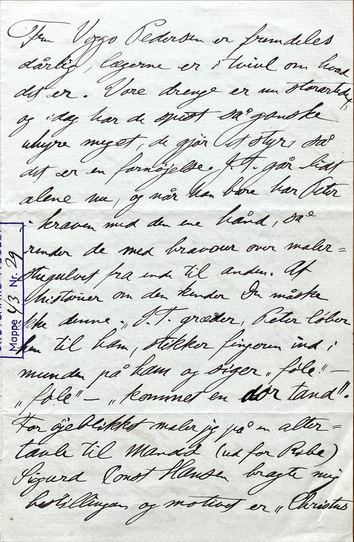 Fru Viggo Pedersen er fremdeles
dårlig, lægerne er i tvivl om hvad
det er. Vore drenge er nu storartede,
og idag har de spist så ganske
uhyre meget, de gjør et styr, så
det er en fornøjelse. J.T. går lidt
alene nu, og når han bare har Peter
i kraven med den ene hånd, så
render de med bravour over maler-
stuegulvet fra ende til anden. Af
historier om den kender Du måske
ikke denne, „J.T. græder, Peter løber
hen til ham, stikker fingeren ind i
munden på ham og siger „føle" –
„føle" – „kommet en dor tand".
For øjeblikket maler jeg på en alter-
tavle til Mandø (ud for Ribe)
Sigurd Const Hansen bragte mig
bestillingen og motivet er „Christus
Mappe 4/3 Nr. 29